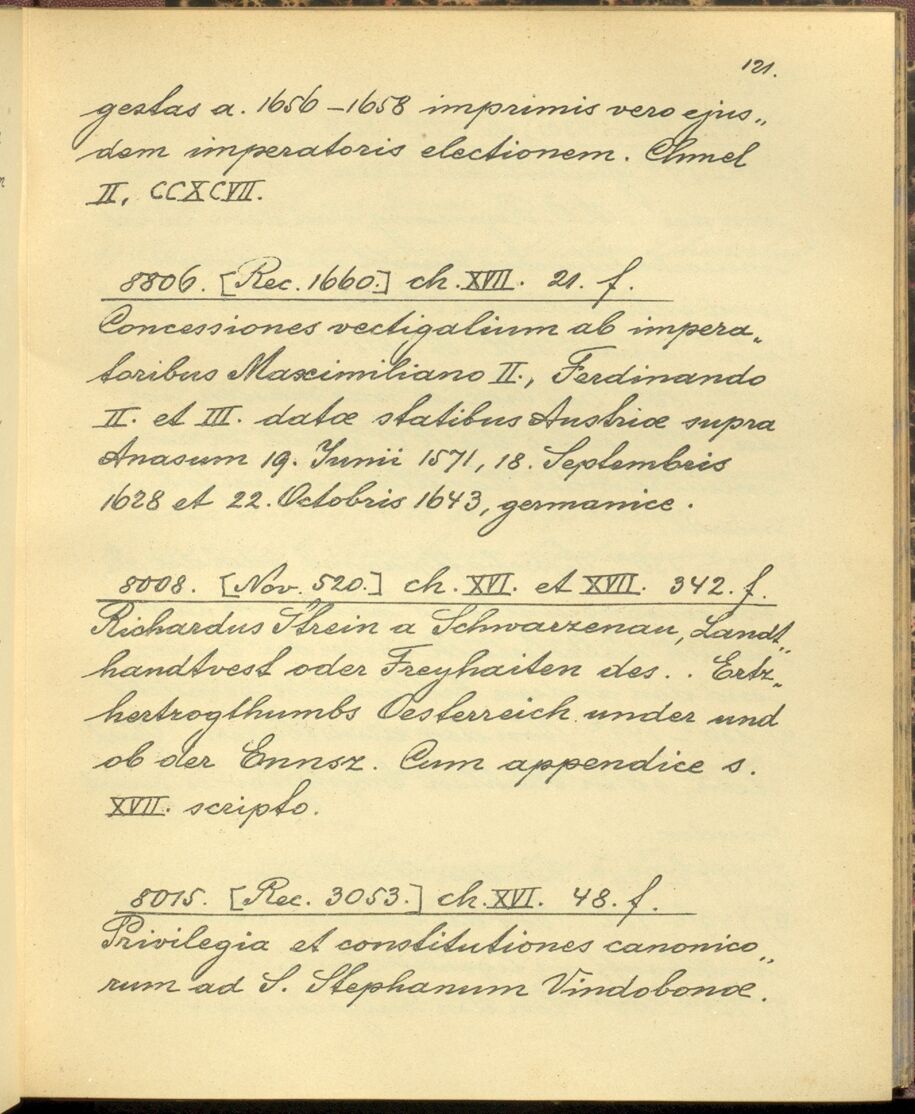 121.
gestas a. 1656 – 1658 imprimis vero ejus„
dem imperatoris electionem. Chmel
II, CCXCVII.
8806. [Rec. 1660.] ch. XVII. 21. f.
Concessiones vectigalium ab impera„
toribus Maximiliano II., Ferdinando
II. et III. datæ statibus Austriæ supra
Anasum 19. Junii 1571, 18. Septembris
1628 et 22. Octobris 1643, germanice.
8008. [Nov. 520.] ch. XVI. et XVII. 342. f.
Richardus Strein a Schwarzenau, Landt„
handtvest oder Freyhaiten des . . Ertz„
hertzogthumbs Oesterreich under und
ob der Ennsz. Cum appendice s.
XVII. scripto.
8015. [Rec. 3053.] ch. XVI. 48. f.
Privilegia et constitutiones canonico„
rum ad S. Stephanum Vindobonæ.